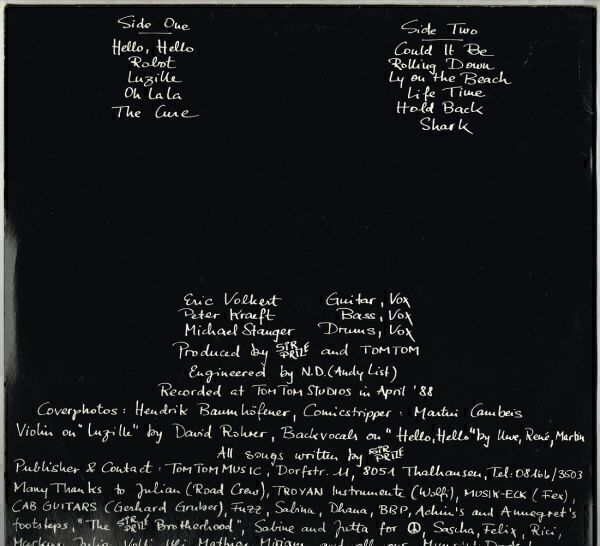 Side One
Hello, Hello
Robot
Luzille
Oh La La
The Cure
Side Two
Could It Be
Rolling Down
Ly on the Beach
Life Time
Hold Back
Shark
Eric Volkert Guitar, Vox
Peter Kraeft Bass, Vox
Michael Stanger Drums, Vox
Produced by SIR PRIZE and TOMTOM
Engineered by N.D. (Andy List)
Recorded at TOMTOM STUDIOS in April '88
Coverphotos: Hendrik Baumhöfener, Comicstripper: Martin Cambeis
Violin on "Luzille" by David Rohrer, Backvocals on "Hello, Hello" by Uwe, René, Martin
All songs written by SIR PRIZE
Publisher & Contact: TOM TOM MUSIC, Dorfstr. 11, 8051 Thalhausen, Tel: 08166/3503
Many Thanks to Julian (Road Crew), TROYAN Instrumente (Wolfi), MUSIK-ECK (Fex),
CAB GUITARS (Gerhard Gruber), Fuzz, Sabina, Dhana, BBP, Achim's and Annegret's
footsteps, "The SIR PRIZE Brotherhood", Sabine and Jutta for ☮, Sascha, Felix, Rici,